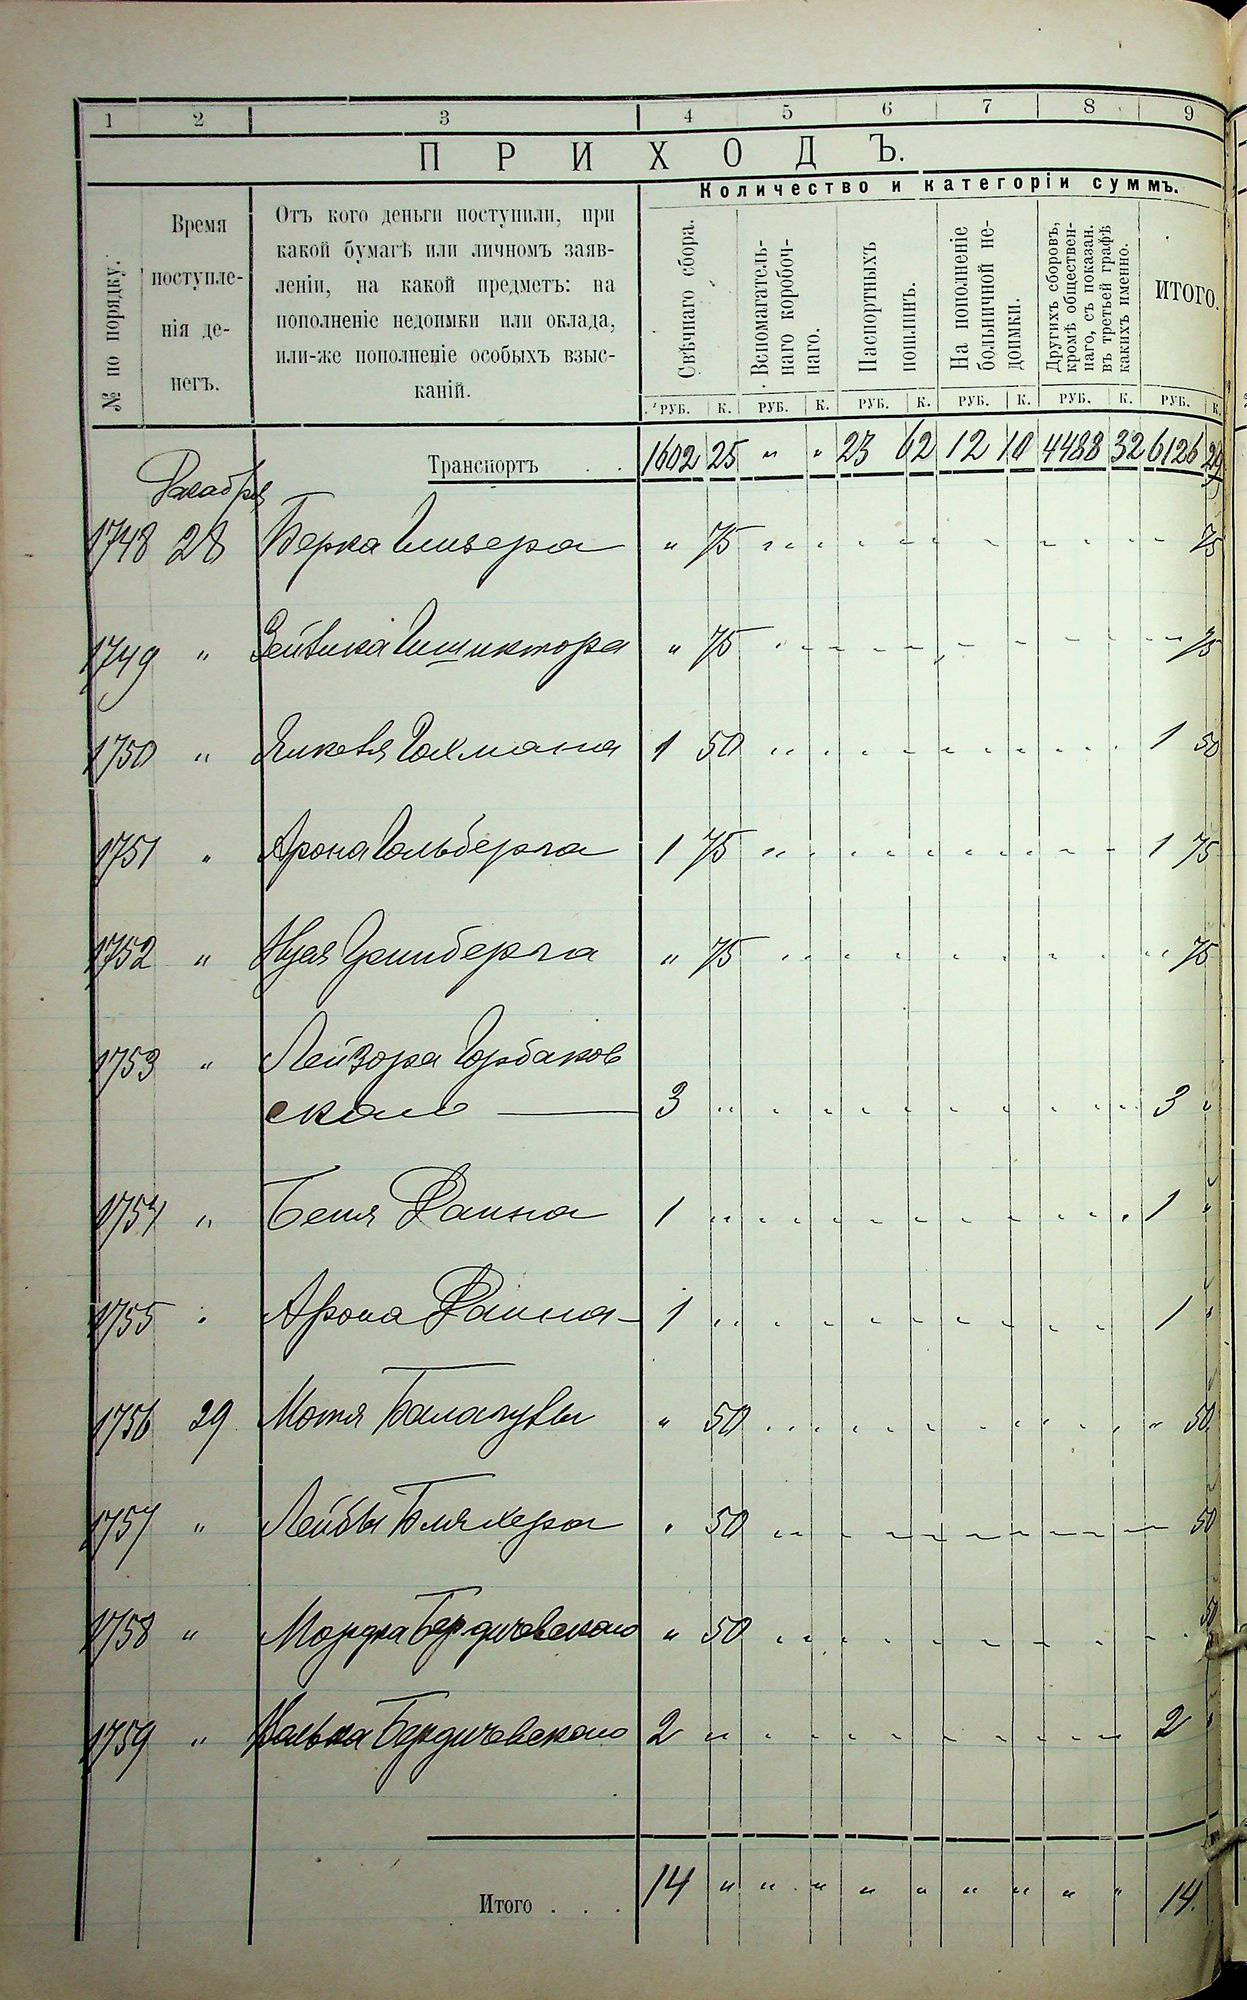 1 2 3 4 5 6 7 8 9
ПРИХОДЪ.
Количество и категоріи суммъ.
№ по порядку.
Время
поступле-
нія де-
негъ.
Отъ кого деньги поступили, при
какой бумагѣ или личномъ заяв-
леніи, на какой предметъ: на
пополненіе недоимки или оклада,
или-же пополненіе особыхъ взыс-
каній.
Свѣчнаго сбора.
Вспомагатель-
наго коробоч-
наго.
Паспортныхъ
пошлинъ.
На пополненіе
больничной не-
доимки.
Другихъ сборовъ,
кромѣ обществен-
наго, съ показан.
въ третьей графѣ
какихъ именно.
ИТОГО.
РУБ. К. РУБ. К. РУБ. К. РУБ. К. РУБ. К. РУБ. К.
Транспортъ . . 1602 25 " " 23 62 12 10 4488 32 6126 29
Декабря
1748 28 Берка " 75 75
1749 " " 75 75
1750 " Гохмана 1 50 1 50
1751 " Арона Гольберга 1 75 1 75
1752 " Гринберга " 75 " 75
1753 " Лейзора Горбаков
ского 3 " 3 "
1754 " Беня Фаина 1 " 1 "
1755 " Арона Фаина 1 " 1 "
1756 29 Мотя Балагулы " 50 " 50
1757 " Лейбы Бляхера " 50 50
1758 " Мордка Бердичевского " 50 50
1759 " Волька Бердичевского 2 " 2 "
Итого . . . 14 " " " " " " " " " 14